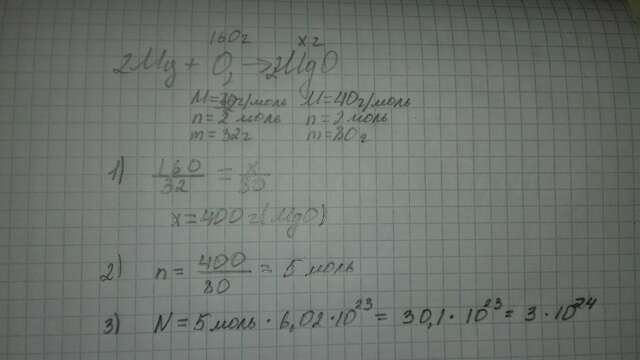 160г xг
2Mg + O₂ → 2MgO
M=32г/моль M=40г/моль
n=2 моль n=2 моль
m=32г m=80г
1) 160/32 = x/80
x=400г(MgO)
2) n = 400/80 = 5 моль
3) N = 5 моль · 6,02·10²³ = 30,1·10²³ = 3·10²⁴